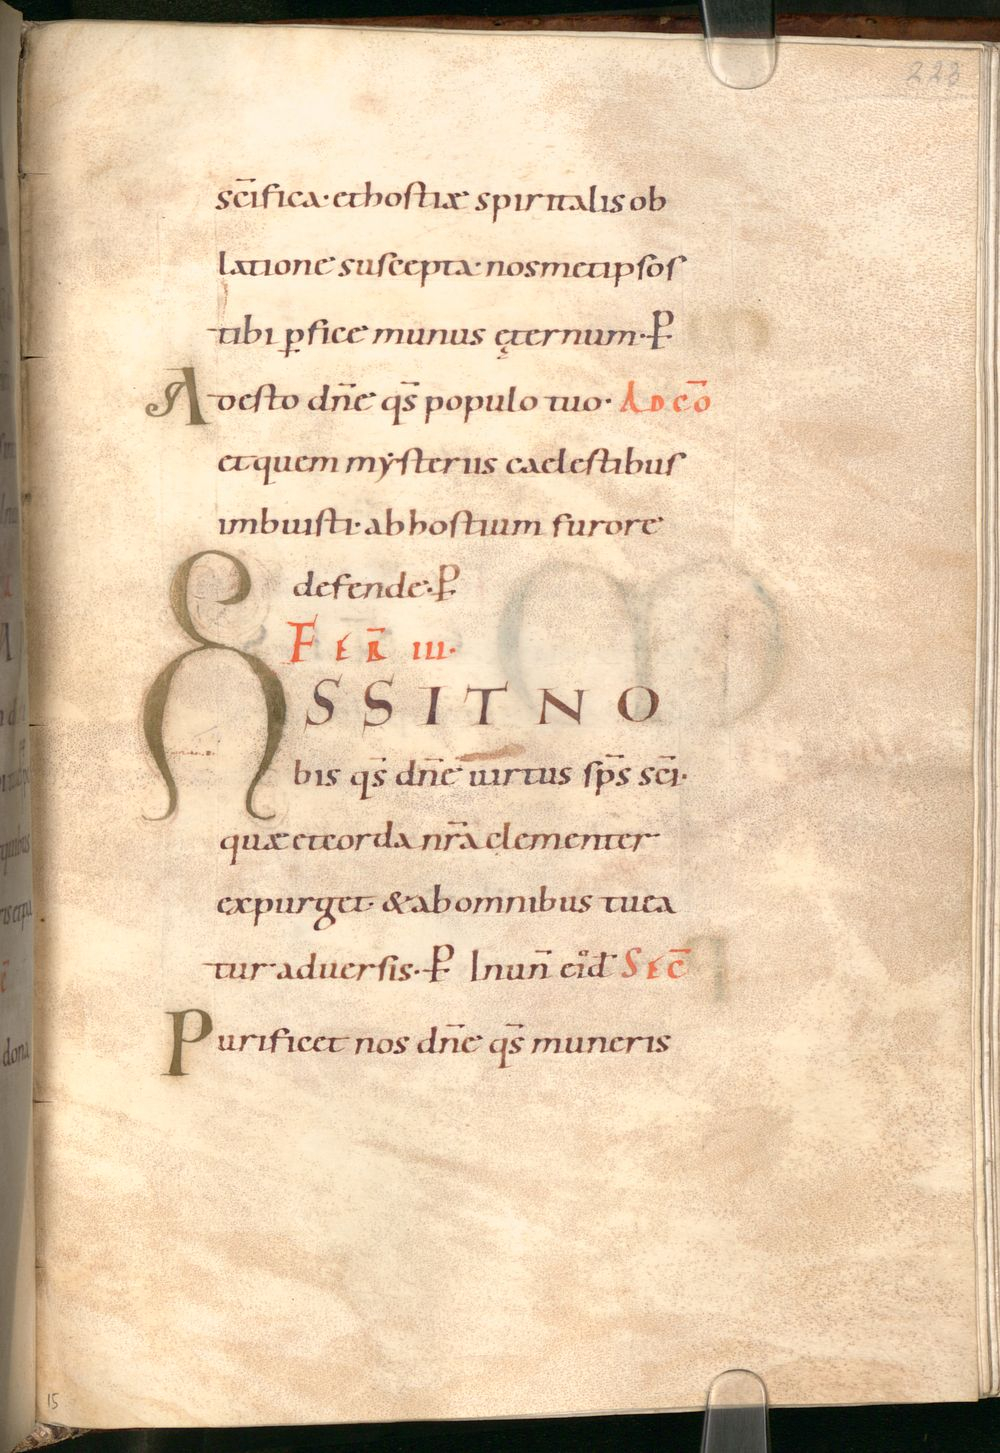 223
sc̄ifica· et hostiæ spiritalis ob
latione suscepta· nosmetipsos
tibi ꝑfice munus ęternum· P̵
Adesto dn̄e qs̄ populo tuo· AD CŌ
et quem mẏsteriis caelestibus
imbuisti· ab hostium furore
defende· P̵
FER̄ III·
ASSIT NO
bis qs̄ dn̄e uirtus sp̄s sc̄i·
quæ et corda nr̄a clementer
expurget· & ab omnibus tuea
tur aduersis· P̵ Inun̄ eid̄ SEC̄
Purificet nos dn̄e qs̄ muneris
15